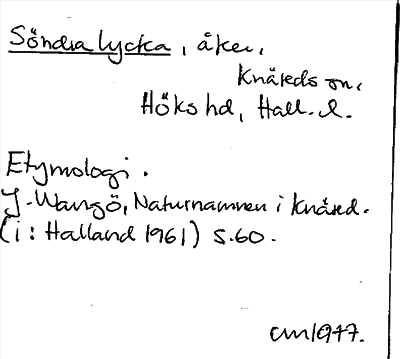 Söndra lycka, åker,
Knäreds sn,
Höks hd, Hall. l.
Etymologi.
J. Wangö, Naturnamnen i Knäred.
(i: Halland 1961) s. 60.
cm 1977.